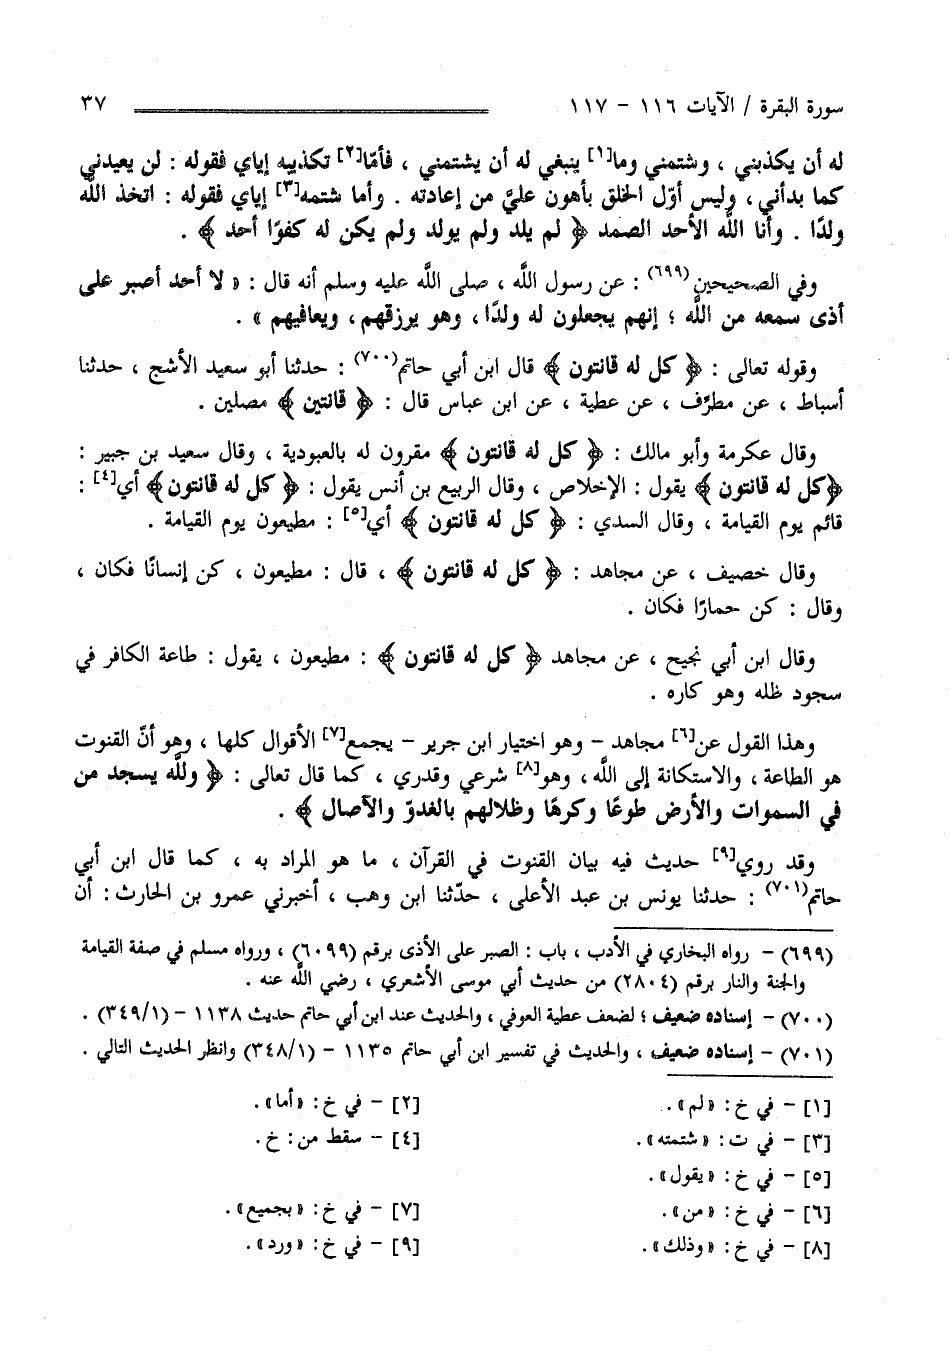 سورة البقرة / الآيات ١١٦ - ١١٧ ٣٧
له أن يكذبني ، وشتمني وما[١] ينبغي له أن يشتمني ، فأمّا[٢] تكذيبه إياي فقوله : لن يعيدني
كما بدأني ، وليس أوّل الخلق بأهون عليّ من إعادته . وأما شتمه[٣] إياي فقوله : اتخذ اللَّه
ولدًا . وأنا اللَّه الأحد الصمد ﴿ لم يلد ولم يولد ولم يكن له كفوًا أحد ﴾ .
وفي الصحيحين(٦٩٩) : عن رسول اللَّه ، صلى اللَّه عليه وسلم أنه قال : « لا أحد أصبر على
أذى سمعه من اللَّه ؛ إنهم يجعلون له ولدًا ، وهو يرزقهم ، ويعافيهم » .
وقوله تعالى : ﴿ كل له قانتون ﴾ قال ابن أبي حاتم(٧٠٠) : حدثنا أبو سعيد الأشج ، حدثنا
أسباط ، عن مطرِّف ، عن عطية ، عن ابن عباس قال : ﴿ قانتين ﴾ مصلين .
وقال عكرمة وأبو مالك : ﴿ كل له قانتون ﴾ مقرون له بالعبودية ، وقال سعيد بن جبير :
﴿كل له قانتون ﴾ يقول : الإخلاص ، وقال الربيع بن أنس يقول : ﴿ كل له قانتون ﴾ أي[٤] :
قائم يوم القيامة ، وقال السدي : ﴿ كل له قانتون ﴾ أي[٥] : مطيعون يوم القيامة .
وقال خصيف ، عن مجاهد : ﴿ كل له قانتون ﴾ ، قال : مطيعون ، كن إنسانًا فكان ،
وقال : كن حمارًا فكان .
وقال ابن أبي نجيح ، عن مجاهد ﴿ كل له قانتون ﴾ : مطيعون ، يقول : طاعة الكافر في
سجود ظله وهو كاره .
وهذا القول عن[٦] مجاهد - وهو اختيار ابن جرير - يجمع[٧] الأقوال كلها ، وهو أنّ القنوت
هو الطاعة ، والاستكانة إلى اللَّه ، وهو[٨] شرعي وقدري ، كما قال تعالى : ﴿ وللَّه يسجد من
في السموات والأرض طوعًا وكرهًا وظلالهم بالغدوّ والآصال ﴾ .
وقد روي[٩] حديث فيه بيان القنوت في القرآن ، ما هو المراد به ، كما قال ابن أبي
حاتم(٧٠١) : حدثنا يونس بن عبد الأعلى ، حدّثنا ابن وهب ، أخبرني عمرو بن الحارث : أن
(٦٩٩) - رواه البخاري في الأدب ، باب : الصبر على الأذى برقم (٦٠٩٩) ، ورواه مسلم في صفة القيامة
والجنة والنار برقم (٢٨٠٤) من حديث أبي موسى الأشعري ، رضي اللَّه عنه .
(٧٠٠) - إسناده ضعيف ؛ لضعف عطية العوفي ، والحديث عند ابن أبي حاتم حديث ١١٣٨ - (٣٤٩/١) .
(٧٠١) - إسناده ضعيف ، والحديث في تفسير ابن أبي حاتم ١١٣٥ - (٣٤٨/١) وانظر الحديث التالي .
[١] - في خ : «لم» . [٢] - في خ : «أما» .
[٣] - في ت : «شتمته» . [٤] - سقط من : خ .
[٥] - في خ : «يقول» .
[٦] - في خ : «من» . [٧] - في خ : «بجميع» .
[٨] - في خ : «وذلك» . [٩] - في خ : «ورد» .